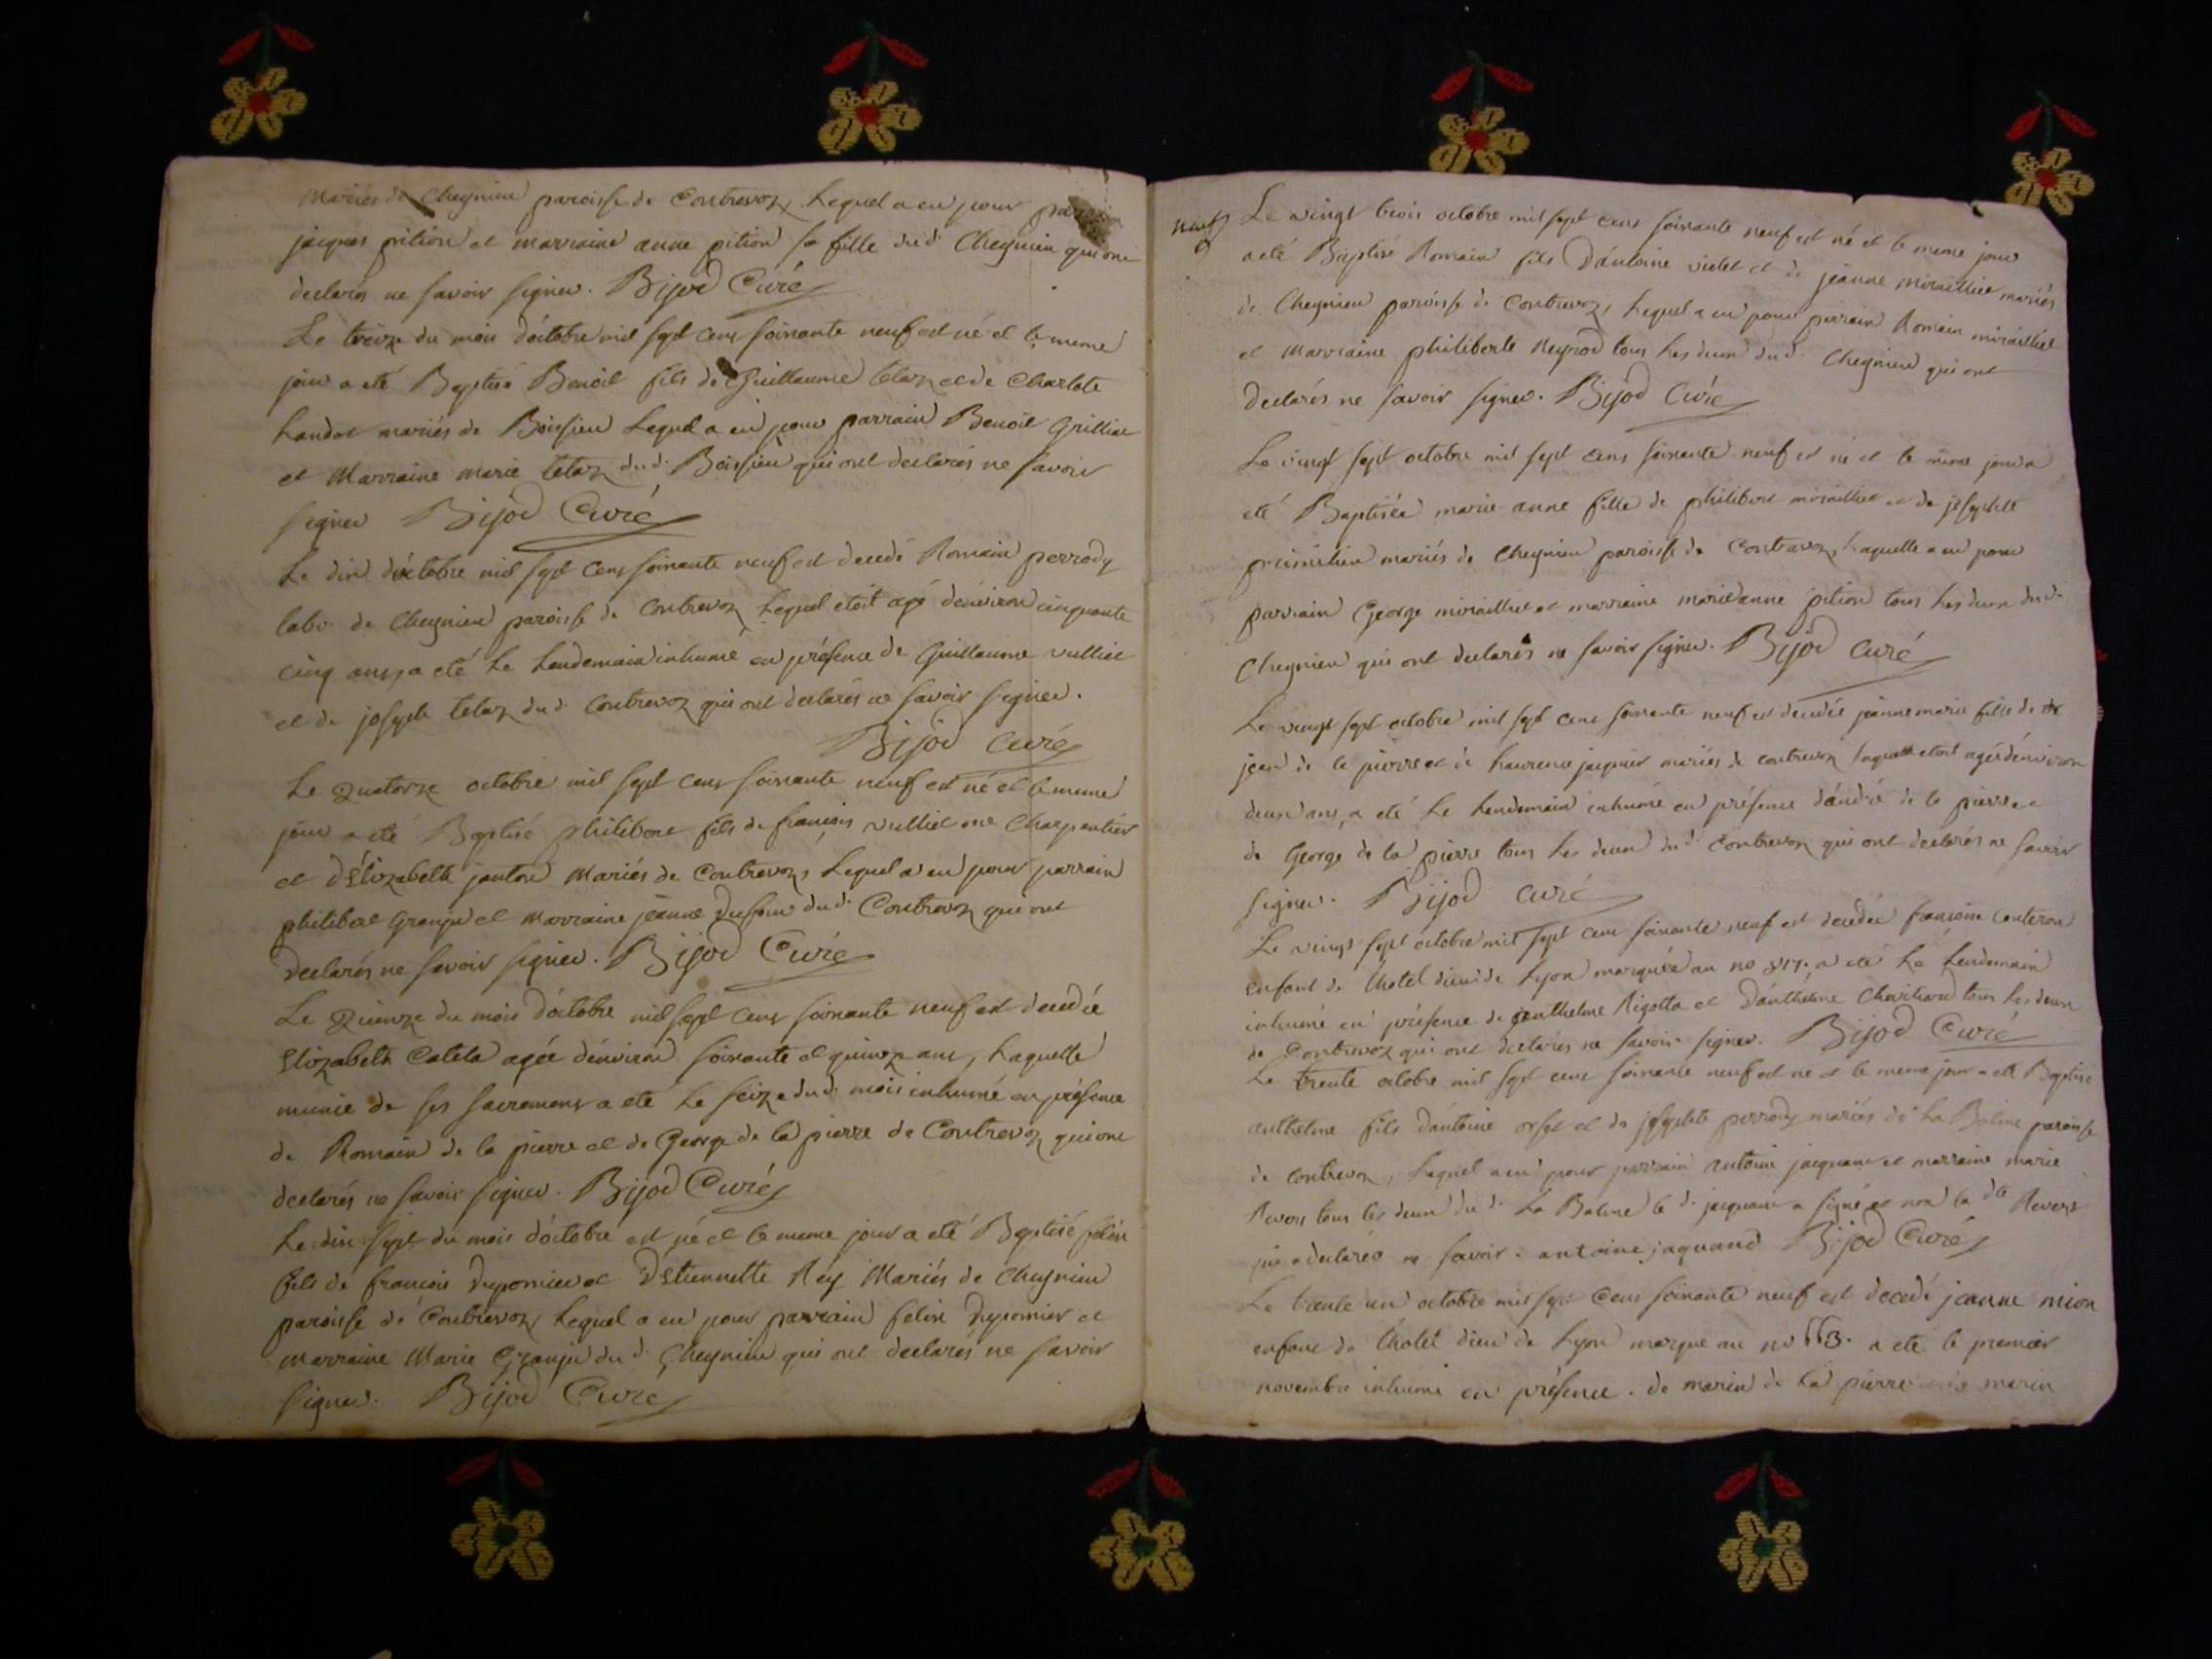 Mariés de Cheynieu paroisse de Contrevoz, Lequel a eu pour parrain
jacques pition et marraine anne pition sa fille dud. Cheynieu qui ont
declarés ne savoir signer. Bijod Curé
Le treize du mois d'octobre mil sept cens soixante neuf est né et le meme
jour a eté Baptisé Benoit fils de Guillaume tetaz et de Charlote
Landot mariés de Boissieu Lequel a eu pour parrain Benoit Grilliet
et Marraine marie tetaz dud. Boissieu qui ont declarés ne savoir
signer Bijod Curé
Le dix d'octobre mil sept cens soixante neuf est decedé Romain perrody
labr. de Cheynieu paroisse de Contrevoz Lequel etoit agé d'environ cinquante
cinq ans, a eté Le Lendemain inhumé en présence de Guillaume vulliet
et de josephe tetaz dud. Contrevoz qui ont declarés ne savoir signer.
Bijod Curé
Le Quatorze octobre mil sept cens soixante neuf est né et le meme
jour a eté Baptisé philibert fils de françois vulliet me Charpentier
et d'Elizabeth janton Mariés de Contrevoz, Lequel a eu pour parrain
philibert Granju et Marraine jeanne Dufour dud. Contrevoz qui ont
Declarés ne savoir signer. Bijod Curé
Le Quinze du mois d'octobre mil sept cens soixante neuf est decedée
Elizabeth Catela agée d'environ soixante et quinze ans, Laquelle
munie de ses sacremens a eté Le seize dud. mois inhumé en présence
de Romain de la pierre et de George de la pierre de Contrevoz qui ont
declarés ne savoir signer. Bijod Curé
Le dix sept du mois d'octobre est né et le meme jour a eté Baptisé felix
fils de françois Dupomier et D'Etiennette Rey Mariés de Cheynieu
paroisse de Contrevoz, Lequel a eu pour parrain felix Dupomier et
Marraine Marie Granju dud. Cheynieu qui ont declarés ne savoir
signer. Bijod Curé
neuf
Le vingt trois octobre mil sept cens soixante neuf est né et le meme jour
a eté Baptisé Romain fils D'antoine violet et de jeanne miraillet mariés
de Cheynieu paroisse de Contrevoz, Lequel a eu pour parrain Romain miraillet
et Marraine philiberte Reynod tous Les deux dud. Cheynieu qui ont
Declarés ne savoir signer. Bijod Curé
Le vingt sept octobre mil sept cens soixante neuf est né et le meme jour a
eté Baptisée marie anne fille de philibert miraillet et de josephte
mariés de Cheynieu paroisse de Contrevoz, Laquelle a eu pour
parrain George miraillet et marraine marie anne pition tous Les deux dud.
Cheynieu qui ont declarés ne savoir signer. Bijod Curé
Le vingt sept octobre mil sept cens soixante neuf est decedée jeanne marie fille de
jean de la pierre et de Laurence jacquier mariés de contrevoz Laquelle etoit agée d'environ
deux ans, a eté Le Lendemain inhumé en présence d'andré de la pierre et
de George de la pierre tous Les deux dud. Contrevoz qui ont declarés ne savoir
signer. Bijod Curé
Le vingt sept octobre mil sept cens soixante neuf est decedée françoise
enfant de L'hotel dieu de Lyon marquée au no 817. a eté Le Lendemain
inhumé en présence de Rigotta et D'anthelme tous Les deux
de Contrevoz qui ont declarés ne savoir signer. Bijod Curé
Le trente octobre mil sept cens soixante neuf est né et le meme jour a eté Baptisé
anthelme fils d'antoine orset et de josephte perrody mariés de La Balme paroisse
de contrevoz, Lequel a eu pour parrain antoine jacquand et marraine marie
Revert tous les deux dud. La Balme le d. jacquand a signé et non la dte Revert
qui a declarés ne savoir. antoine jaquand Bijod Curé
Le trente un octobre mil sept Cens soixante neuf est decedé jeanne mion
enfant de L'hotel dieu de Lyon marqué au no 663. a eté le premier
novembre inhumé en présence. de marin de La pierre marin